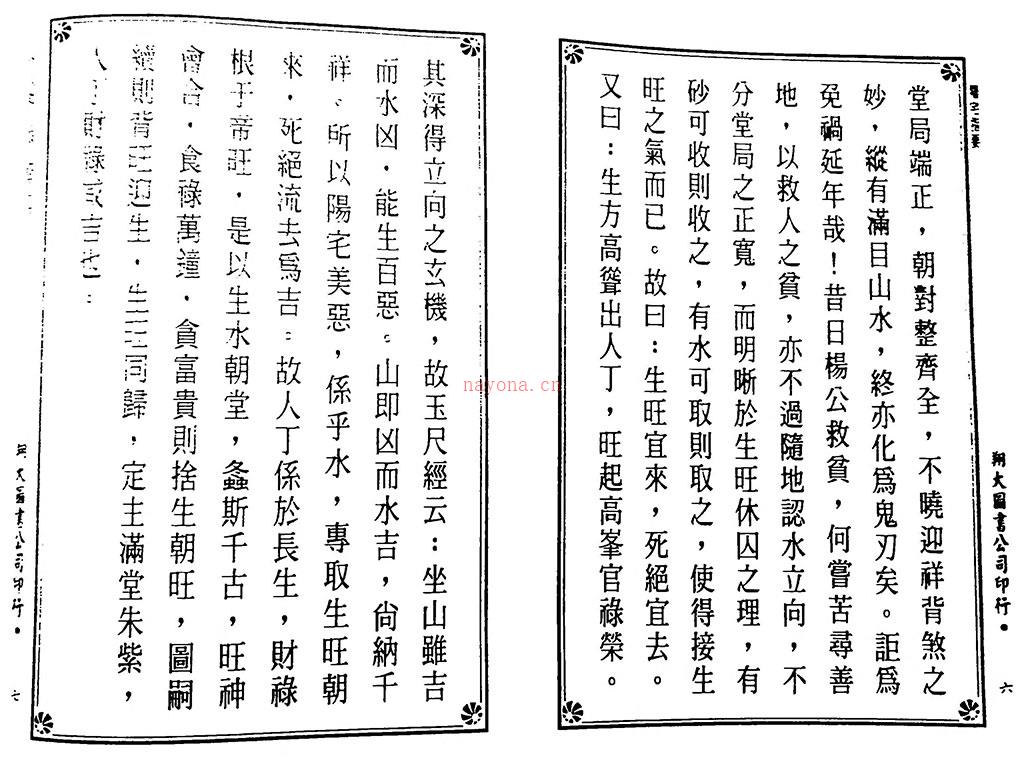 堂局端正，朝對整齊全，不曉迎祥背煞之
妙，縱有滿目山水，終亦化爲鬼刃矣。詎爲
免禍延年哉！昔日楊公救貧，何嘗苦尋善
地，以救人之貧，亦不過隨地認水立向，不
分堂局之正寬，而明晰於生旺休囚之理，有
砂可收則收之，有水可取則取之，使得接生
旺之氣而已。故曰：生旺宜來，死絕宜去。
又曰：生方高聳出人丁，旺起高峯官祿榮。
翔大圖書公司印行。
六
其深得立向之玄機，故玉尺經云：坐山雖吉
而水凶，能生百惡。山即凶而水吉，尙納千
祥。所以陽宅美惡，係乎水，專取生旺朝
來，死絕流去爲吉。故人丁係於長生，財祿
根于帝旺，是以生水朝堂，螽斯千古，旺神
會合，食祿萬鐘，貪富貴則捨生朝旺，圖嗣
續則背旺迎生，生旺同歸，定主滿堂朱紫，
財祿吉也。
翔大圖書公司印行。
七
nayona.cn